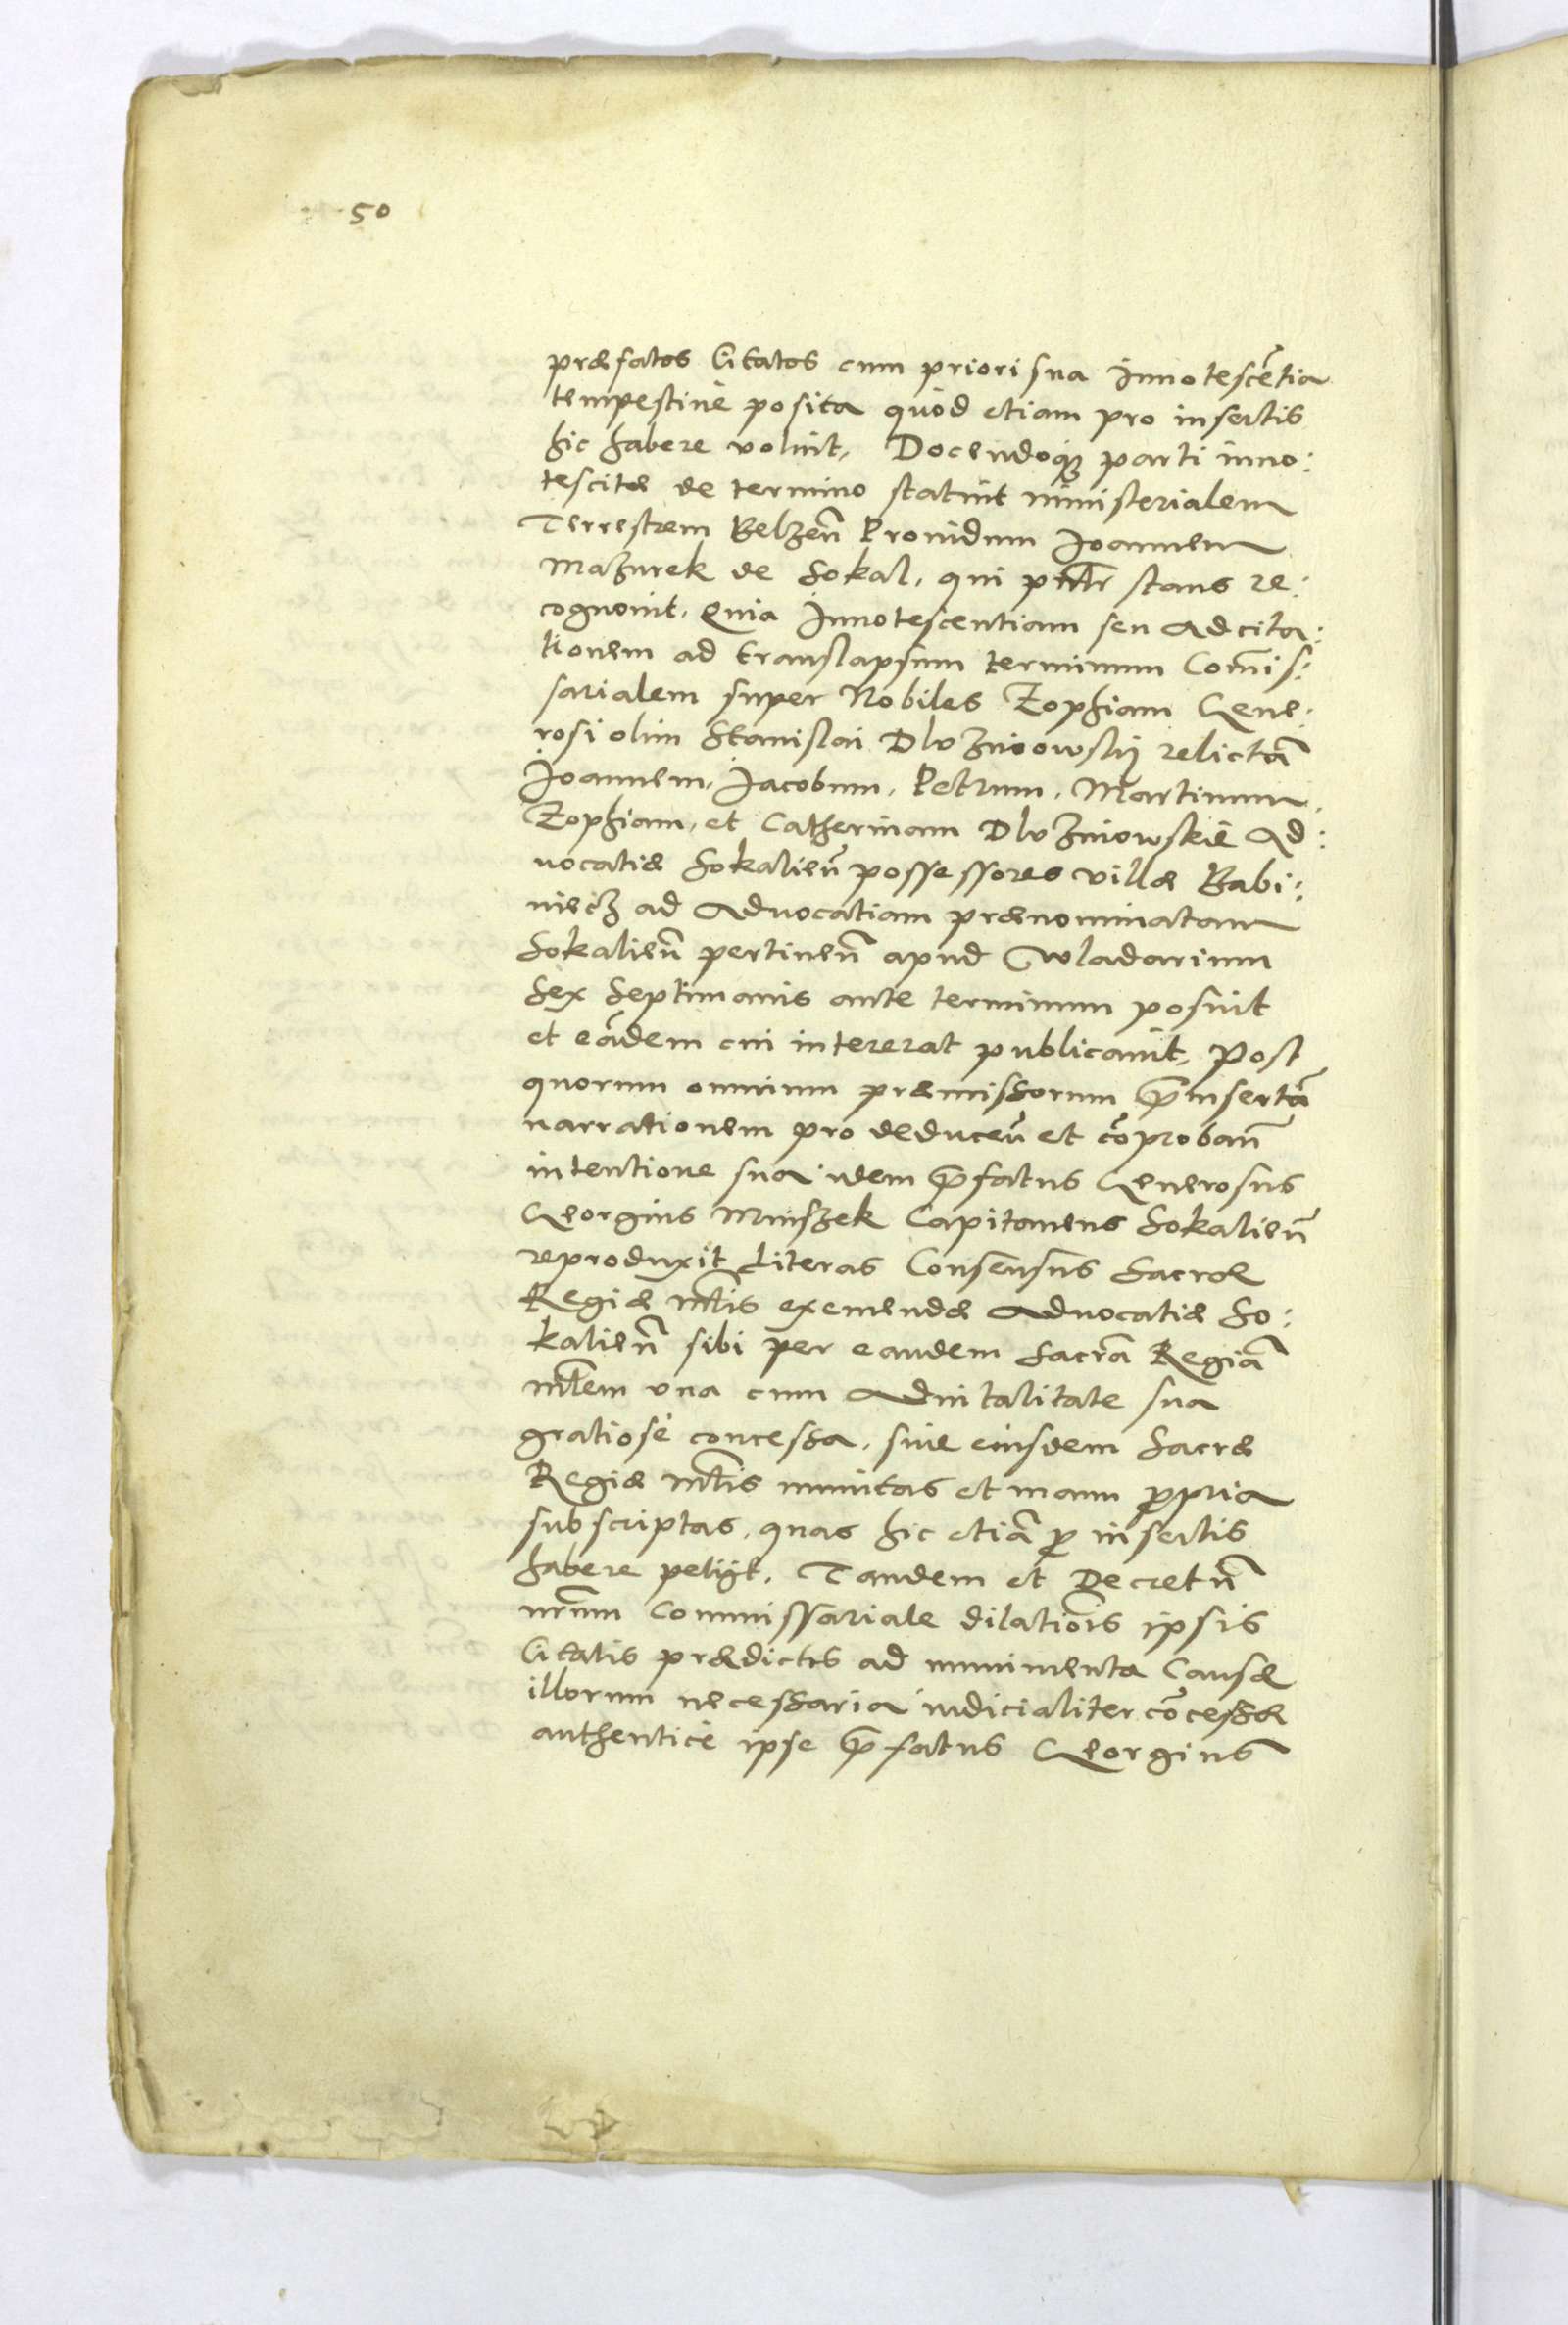 50
præfatos Citatos cum priori sua Innotescẽtia
tempestiuè posita quòd etiam pro insertis
hic habere voluit, Docendoq₃ parti inno:
tescitæ de termino statuit ministerialem
Terrestrem Belzen̄ Prouidum Joannem
Mazurek de Sokal, qui pn̄tr stans re:
cognouit, Quia Innotescentiam seu Adcita:
tionem ad translapsum terminum Com̄is:
sarialem super Nobiles Zophiam Gene:
rosi olim Stanislai Dluzniowskij relictā
Joannem, Jacobum, Petrum, Martinum,
Zophiam, et Catherinam Dluzniowskie Ad:
uocatiæ Sokalien̄ possessores villæ Babi:
niecz ad Aduocatiam prænominatam
Sokalien̄ pertinen̄ apud Wladarium
Sex Septimanis ante terminum posuit
et eādem cui intererat publicauit, Post
quorum omnium præmissorum p̄insertā
narrationem pro deducen̄ et cōproban̄
intentione sua idem p̄fatus Generosus
Georgius Mniszek Capitaneus Sokalien̄
reproduxit Literas Consensus Sacræ
Regiæ Mt̄is exemendæ Aduocatiæ So:
kalien̄ sibi per eandem Sacrā Regiā
Mt̄em vna cum Aduitalitate sua
gratiosè concessa, siue eiusdem Sacræ
Regiæ Mt̄is munitas et manu p̄pria
subscriptas, quas hic etiā p̄ insertis
habere petijt. Tandem et Decretū
nr̄um Commissariale dilatiōis ipsis
Citatis prædictis ad munimenta Causæ
illorum necessaria iudicialiter cōcessæ
authenticè ipse p̄fatus Georgius